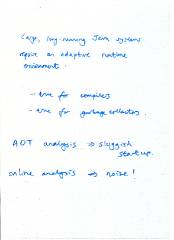 Large, long-running Java systems
require an adaptive runtime
environment.
- true for compilers
- true for garbage collectors
AOT analysis ⇒ sluggish
startup.
online analysis ⇒ noise!